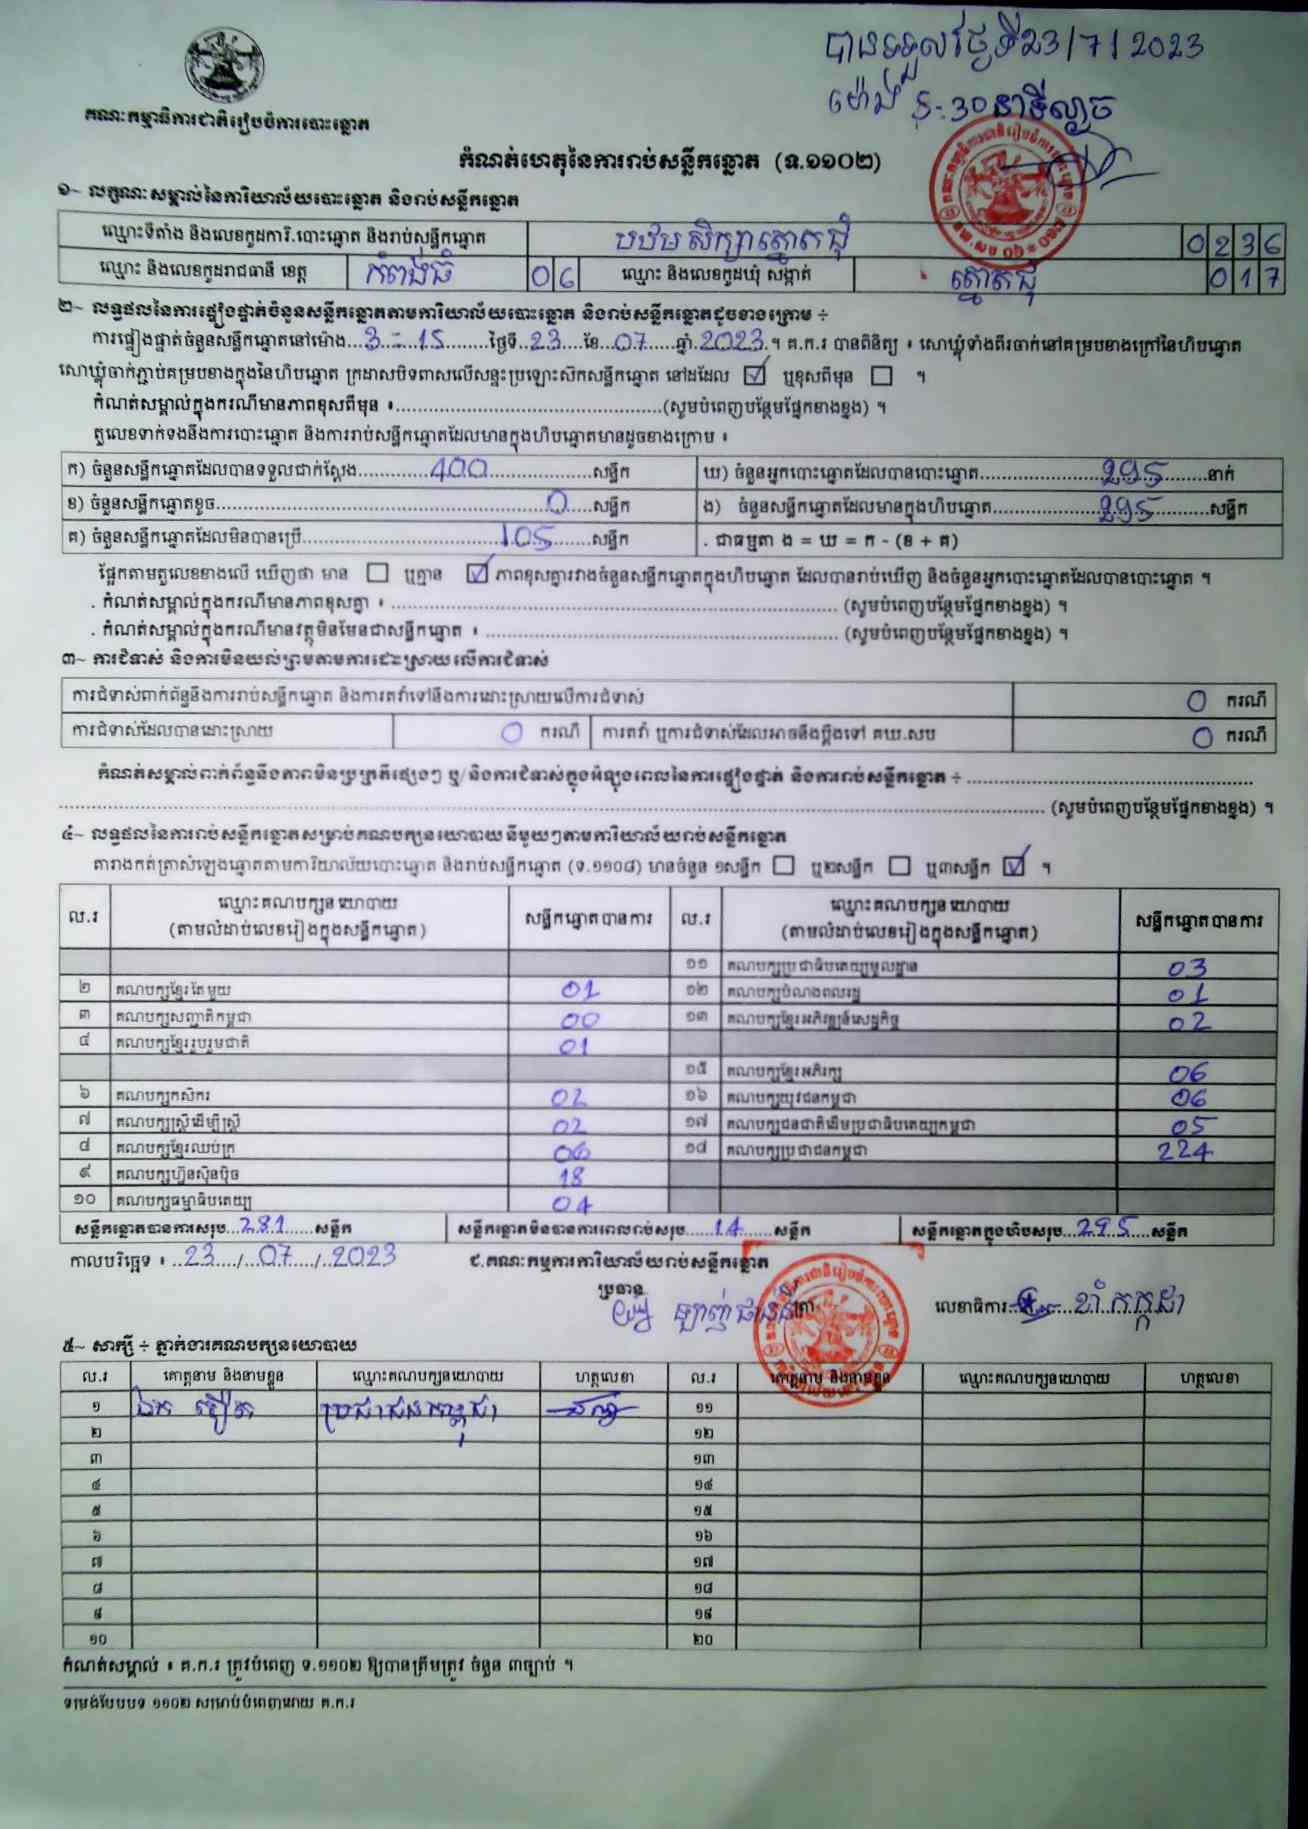 បានទទួលថ្ងៃទី23/7/2023
ម៉ោង 5:30នាទីល្ងាច
គណៈកម្មាធិការជាតិរៀបចំការបោះឆ្នោត
កំណត់ហេតុនៃការរាប់សន្លឹកឆ្នោត (ទ.១១០២)
១~ លក្ខណៈសម្គាល់នៃការិយាល័យបោះឆ្នោត និងរាប់សន្លឹកឆ្នោត
ឈ្មោះទីតាំង និងលេខកូដការិ.បោះឆ្នោត និងរាប់សន្លឹកឆ្នោត បឋមសិក្សាត្នោតជុំ 0236
ឈ្មោះ និងលេខកូដរាជធានី ខេត្ត កំពង់ធំ 06 ឈ្មោះ និងលេខកូដឃុំ សង្កាត់ ត្នោតជុំ 017
២~ លទ្ធផលនៃការផ្ទៀងផ្ទាត់ចំនួនសន្លឹកឆ្នោតតាមការិយាល័យបោះឆ្នោត និងរាប់សន្លឹកឆ្នោតដូចខាងក្រោម ÷
ការផ្ទៀងផ្ទាត់ចំនួនសន្លឹកឆ្នោតនៅម៉ោង...3-15...ថ្ងៃទី..23...ខែ..07...ឆ្នាំ.2023.។ គ.ក.រ បានពិនិត្យ ៖ សោឃ្លុំទាំងពីរចាក់នៅគម្របខាងក្រៅនៃហិបឆ្នោត
សោឃ្លុំចាក់ភ្ជាប់គម្របខាងក្នុងនៃហិបឆ្នោត ក្រដាសបិទពាសលើសន្ទះប្រឡោះស៊កសន្លឹកឆ្នោត នៅដដែល ☑ ឬខុសពីមុន ☐ ។
កំណត់សម្គាល់ក្នុងករណីមានភាពខុសពីមុន ៖...(សូមបំពេញបន្ថែមផ្នែកខាងខ្នង) ។
តួលេខទាក់ទងនឹងការបោះឆ្នោត និងការរាប់សន្លឹកឆ្នោតដែលមានក្នុងហិបឆ្នោតមានដូចខាងក្រោម ៖
ក) ចំនួនសន្លឹកឆ្នោតដែលបានទទួលជាក់ស្តែង...400...សន្លឹក ឃ) ចំនួនអ្នកបោះឆ្នោតដែលបានបោះឆ្នោត...295...នាក់
ខ) ចំនួនសន្លឹកឆ្នោតខូច...0...សន្លឹក ង) ចំនួនសន្លឹកឆ្នោតដែលមានក្នុងហិបឆ្នោត...295...សន្លឹក
គ) ចំនួនសន្លឹកឆ្នោតដែលមិនបានប្រើ...105...សន្លឹក . ជាធម្មតា ង = ឃ = ក - (ខ + គ)
ផ្អែកតាមតួលេខខាងលើ ឃើញថា មាន ☐ ឬគ្មាន ☑ ភាពខុសគ្នារវាងចំនួនសន្លឹកឆ្នោតក្នុងហិបឆ្នោត ដែលបានរាប់ឃើញ និងចំនួនអ្នកបោះឆ្នោតដែលបានបោះឆ្នោត ។
. កំណត់សម្គាល់ក្នុងករណីមានភាពខុសគ្នា ៖ ... (សូមបំពេញបន្ថែមផ្នែកខាងខ្នង) ។
. កំណត់សម្គាល់ក្នុងករណីមានវត្ថុមិនមែនជាសន្លឹកឆ្នោត ៖ ... (សូមបំពេញបន្ថែមផ្នែកខាងខ្នង) ។
៣~ ការជំទាស់ និងការមិនយល់ព្រមតាមការដោះស្រាយលើការជំទាស់
ការជំទាស់ពាក់ព័ន្ធនឹងការរាប់សន្លឹកឆ្នោត និងការតវ៉ាទៅនឹងការដោះស្រាយលើការជំទាស់ 0 ករណី
ការជំទាស់ដែលបានដោះស្រាយ 0 ករណី ការតវ៉ា ឬការជំទាស់ដែលអាចនឹងប្តឹងទៅ គឃ.សប 0 ករណី
កំណត់សម្គាល់ពាក់ព័ន្ធនឹងភាពមិនប្រក្រតីផ្សេងៗ ឬ/និងការជំទាស់ក្នុងអំឡុងពេលនៃការផ្ទៀងផ្ទាត់ និងការរាប់សន្លឹកឆ្នោត ÷ ...
... (សូមបំពេញបន្ថែមផ្នែកខាងខ្នង) ។
៤~ លទ្ធផលនៃការរាប់សន្លឹកឆ្នោតសម្រាប់គណបក្សនយោបាយនីមួយៗតាមការិយាល័យរាប់សន្លឹកឆ្នោត
តារាងកត់ត្រាសំឡេងឆ្នោតតាមការិយាល័យបោះឆ្នោត និងរាប់សន្លឹកឆ្នោត (ទ.១១០៨) មានចំនួន ១សន្លឹក ☐ ឬ២សន្លឹក ☐ ឬ៣សន្លឹក ☑ ។
ល.រ ឈ្មោះគណបក្សនយោបាយ សន្លឹកឆ្នោតបានការ ល.រ ឈ្មោះគណបក្សនយោបាយ សន្លឹកឆ្នោតបានការ
(តាមលំដាប់លេខរៀងក្នុងសន្លឹកឆ្នោត) (តាមលំដាប់លេខរៀងក្នុងសន្លឹកឆ្នោត)
១១ គណបក្សប្រជាធិបតេយ្យមូលដ្ឋាន 03
២ គណបក្សខ្មែរតែមួយ 01 ១២ គណបក្សបំណងពលរដ្ឋ 01
៣ គណបក្សសញ្ជាតិកម្ពុជា 00 ១៣ គណបក្សខ្មែរអភិវឌ្ឍន៍សេដ្ឋកិច្ច 02
៤ គណបក្សខ្មែររួបរួមជាតិ 01
១៥ គណបក្សខ្មែរអភិរក្ស 06
៦ គណបក្សកសិករ 02 ១៦ គណបក្សយុវជនកម្ពុជា 06
៧ គណបក្សស្ត្រីដើម្បីស្ត្រី 02 ១៧ គណបក្សជនជាតិដើមប្រជាធិបតេយ្យកម្ពុជា 05
៨ គណបក្សខ្មែរឈប់ក្រ 06 ១៨ គណបក្សប្រជាជនកម្ពុជា 224
៩ គណបក្សហ៊្វុនស៊ិនប៉ិច 18
១០ គណបក្សធម្មាធិបតេយ្យ 04
សន្លឹកឆ្នោតបានការសរុប...281...សន្លឹក សន្លឹកឆ្នោតមិនបានការពេលរាប់សរុប...14...សន្លឹក សន្លឹកឆ្នោតក្នុងហិបសរុប...295...សន្លឹក
កាលបរិច្ឆេទ ៖ ..23.../...07.../..2023 ជ.គណៈកម្មការការិយាល័យរាប់សន្លឹកឆ្នោត
ប្រធាន
លេខាធិការ... ខាំ កក្កដា
៥~ សាក្សី ÷ ភ្នាក់ងារគណបក្សនយោបាយ
ល.រ គោត្តនាម និងនាមខ្លួន ឈ្មោះគណបក្សនយោបាយ ហត្ថលេខា ល.រ គោត្តនាម និងនាមខ្លួន ឈ្មោះគណបក្សនយោបាយ ហត្ថលេខា
១ ប្រជាជនកម្ពុជា ១១
២ ១២
៣ ១៣
៤ ១៤
៥ ១៥
៦ ១៦
៧ ១៧
៨ ១៨
៩ ១៩
១០ ២០
កំណត់សម្គាល់ ៖ គ.ក.រ ត្រូវបំពេញ ទ.១១០២ ឱ្យបានត្រឹមត្រូវ ចំនួន ៣ច្បាប់ ។
ទម្រង់បែបបទ ១១០២ សម្រាប់បំពេញដោយ គ.ក.រ